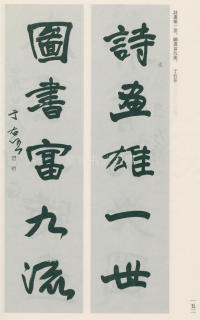 詩畫雄一世，圖書富九流。 于右任
詩畫雄一世
圖書富九流
于右任